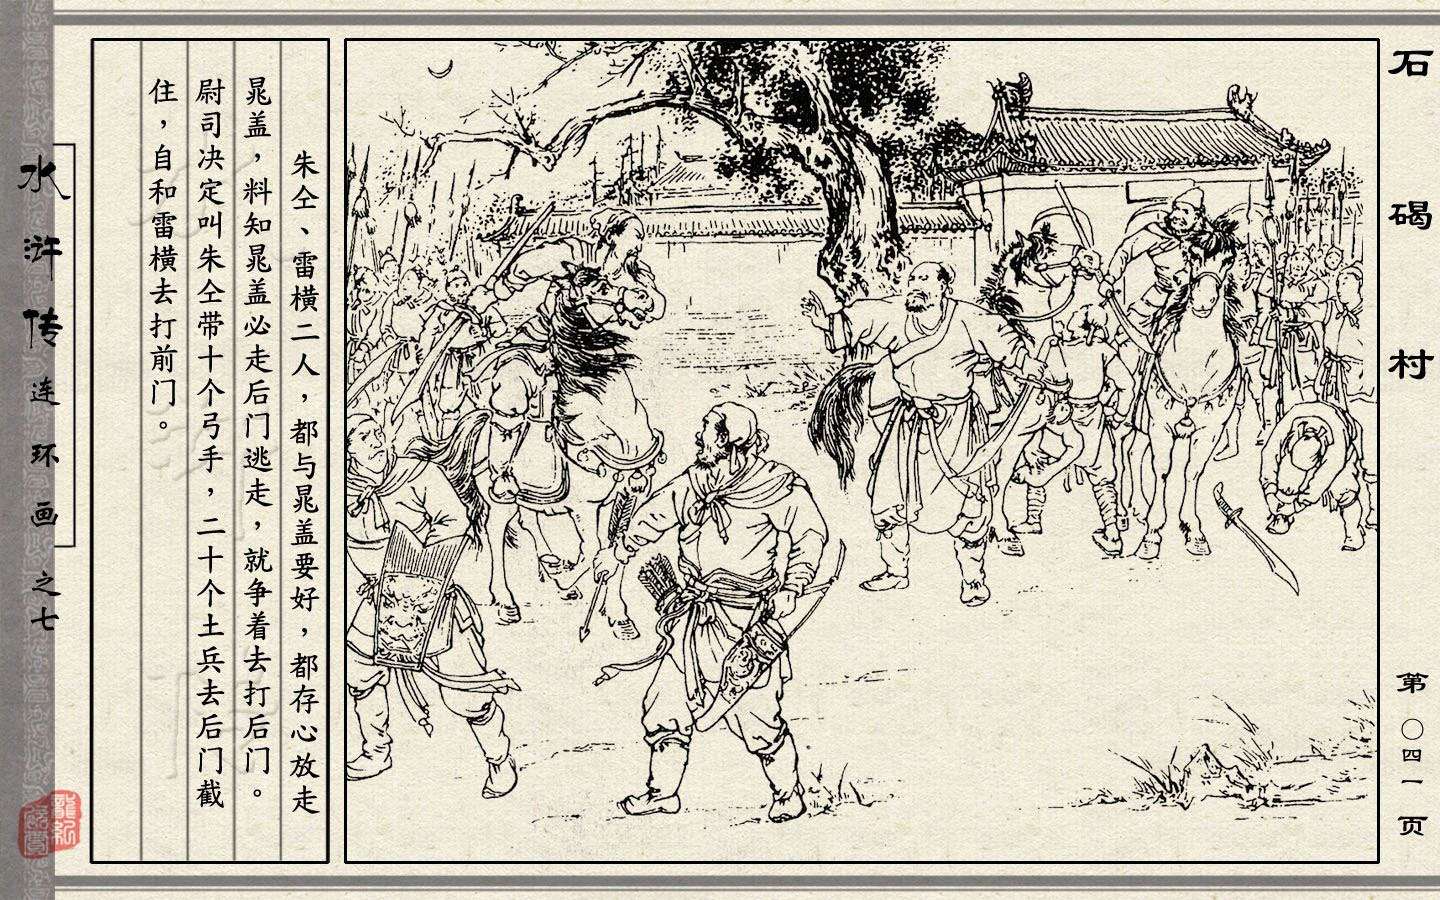 石碣村
第〇四一页
朱仝、雷横二人，都与晁盖要好，都存心放走
晁盖，料知晁盖必走后门逃走，就争着去打后门。
尉司决定叫朱仝带十个弓手，二十个土兵去后门截
住，自和雷横去打前门。
水浒传连环画之七